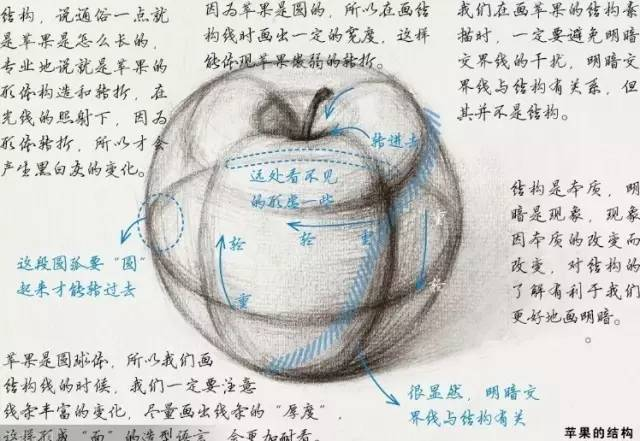 结构，说通俗一点就
是苹果是怎么长的，
专业地说就是苹果的
形体构造和转折，在
光线的照射下，因为
形体转折，所以才会
产生黑白灰的变化。
因为苹果是圆的，所以在画结
构线时画出一定的宽度，这样
能体现苹果微弱的转折。
我们在画苹果的结构素
描时，一定要避免明暗
交界线的干扰，明暗交
界线与结构有关系，但
其并不是结构。
转进去
远处看不见
的形虚一些
轻
重
轻
重
重
轻
这段圆弧要“圆”
起来才能转过去
结构是本质，明
暗是现象，现象
因本质的改变而
改变，对结构的
了解有利于我们
更好地画明暗。
苹果是圆球体，所以我们画
结构线的时候，我们一定要注意
线条丰富的变化，尽量画出线条的“厚度”，
这样形成“面”的造型语言，会更加耐看。
很显然，明暗交
界线与结构有关
苹果的结构